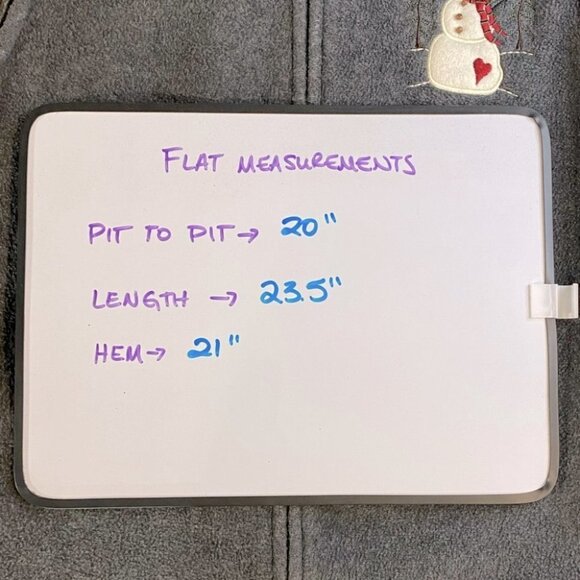 FLAT MEASUREMENTS
PIT TO PIT → 20"
LENGTH → 23.5"
HEM → 21"